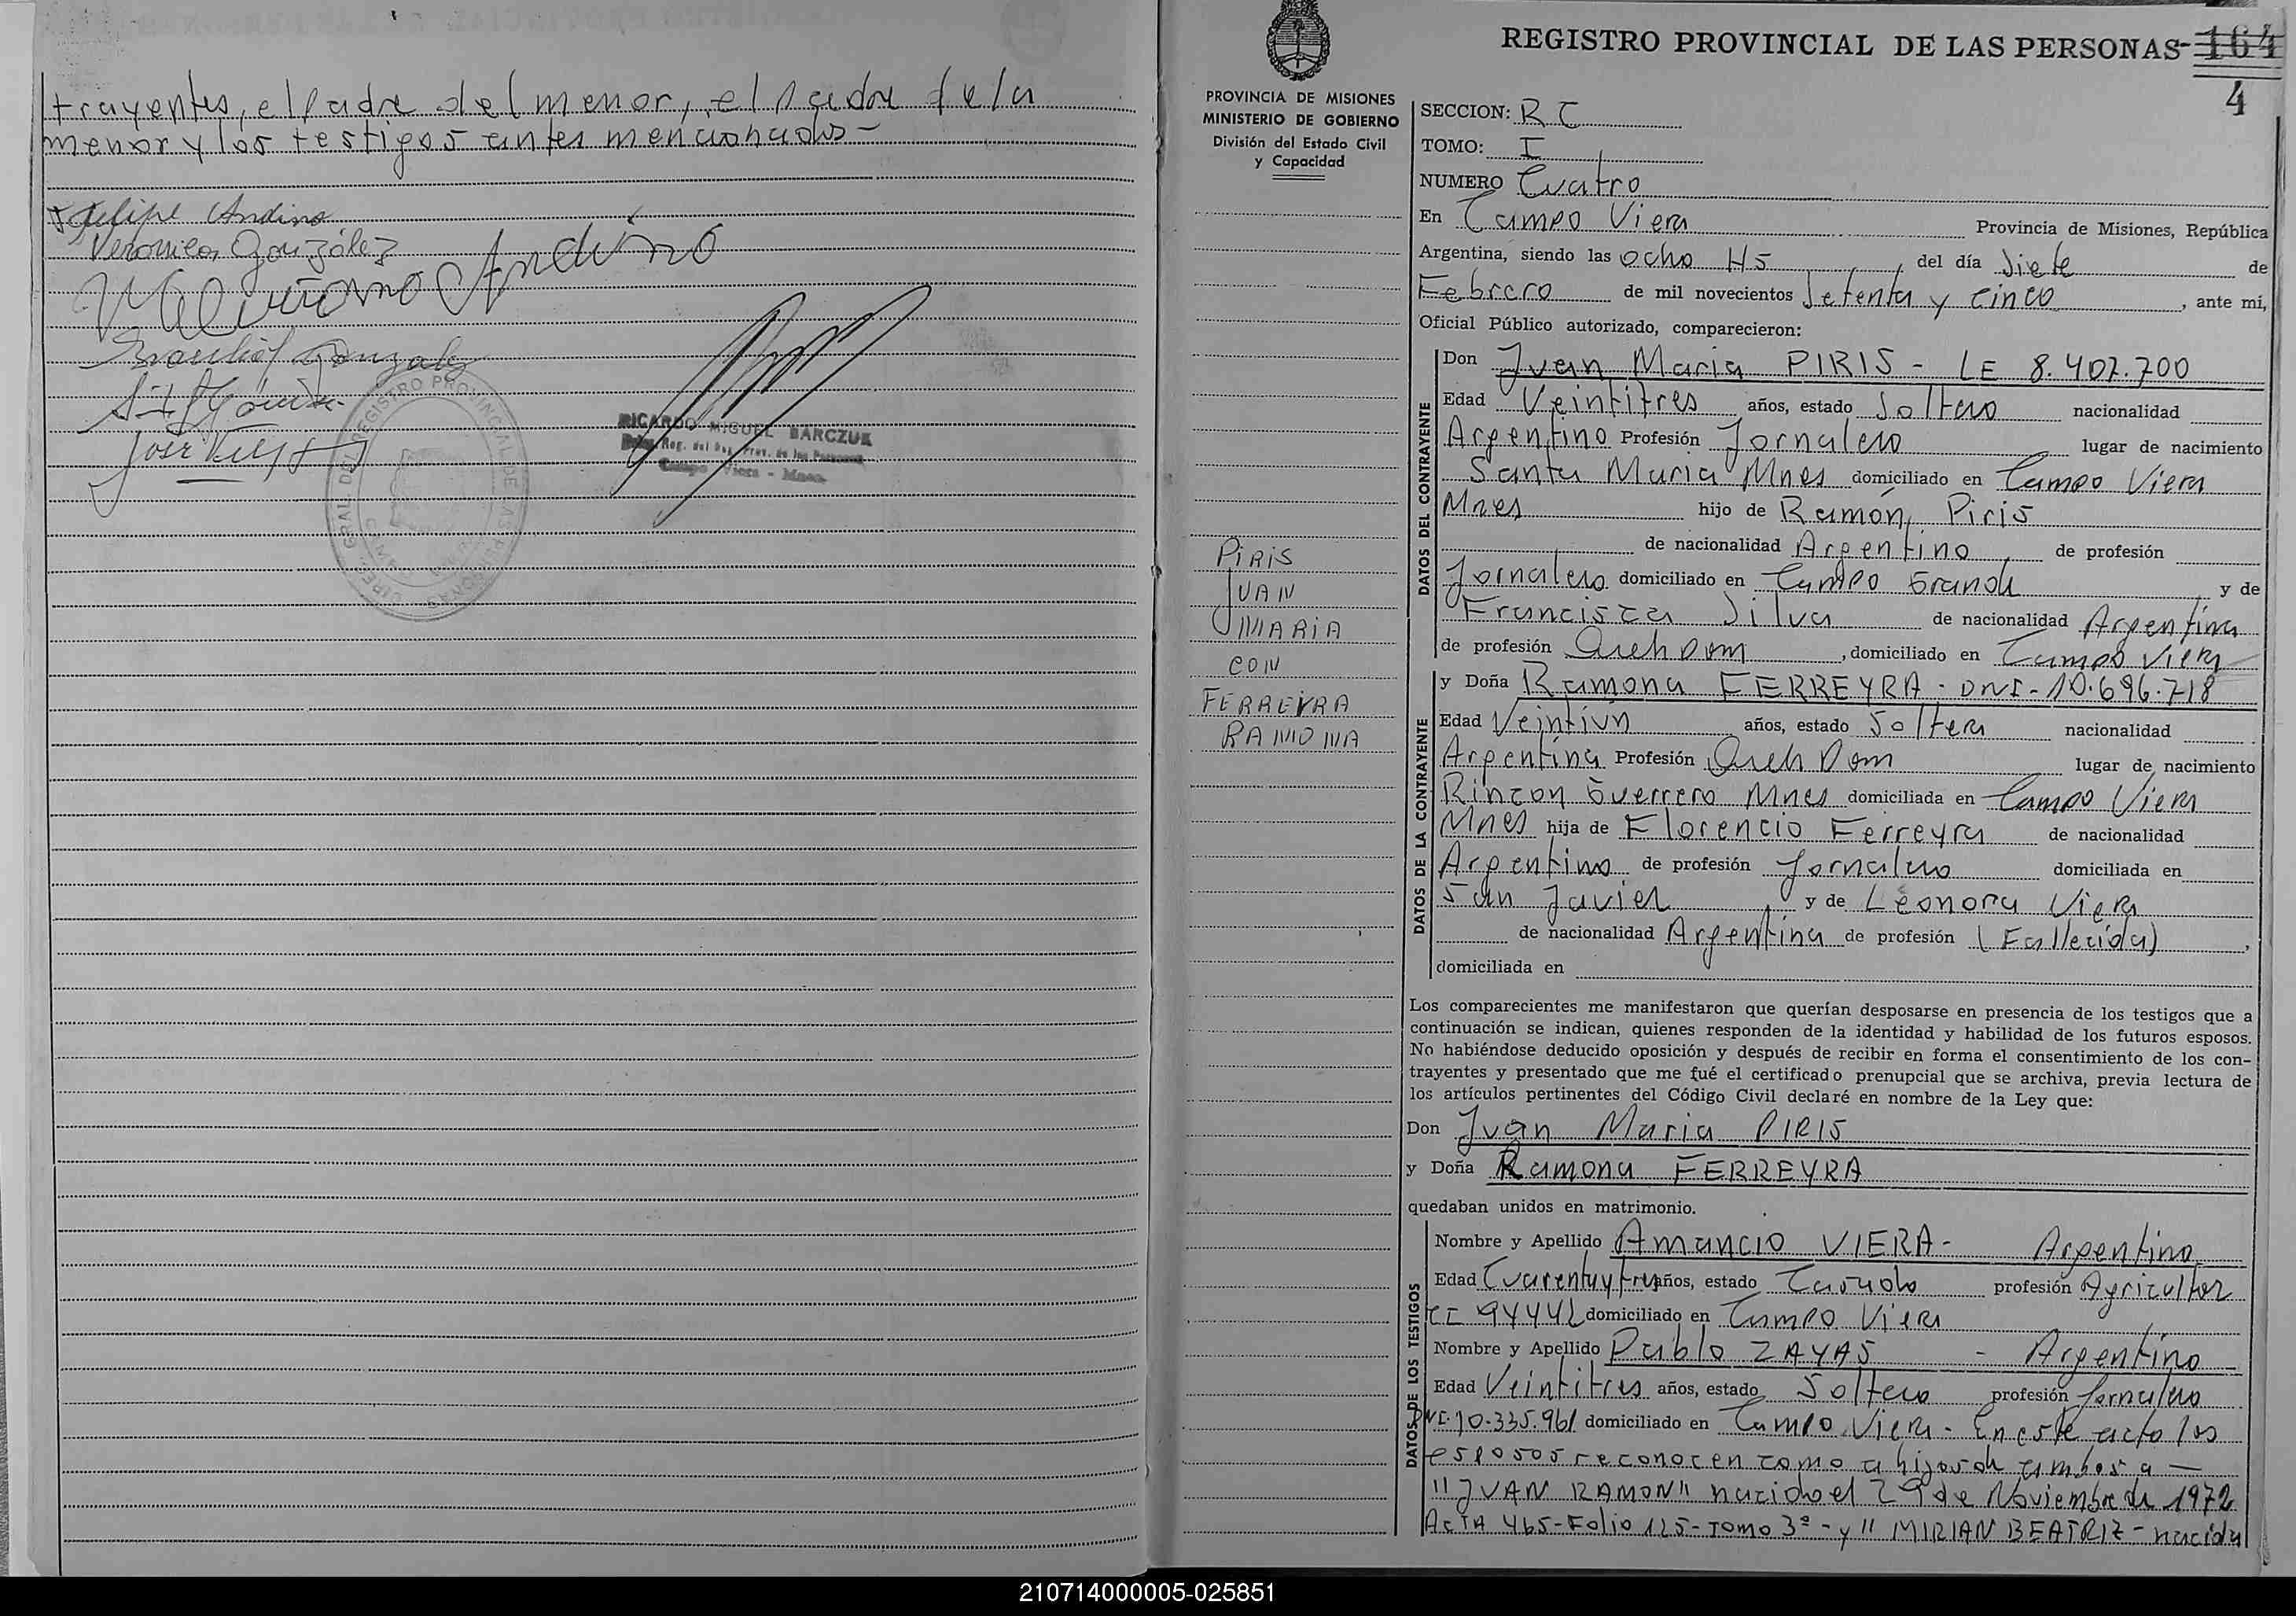 trayentes, el Padre del menor, el Padre de la
menor y los testigos antes mencionados -
Felipe Andino
Veronica González
Andino
Gonzalez
José
RICARDO MIGUEL BARCZUK
Campo Viera - Mnes.
REGISTRO PROVINCIAL DE LAS PERSONAS
164
4
PROVINCIA DE MISIONES
MINISTERIO DE GOBIERNO
División del Estado Civil
y Capacidad
SECCION: R C
TOMO: I
NUMERO Cuatro
En Campo Viera Provincia de Misiones, República
Argentina, siendo las ocho Hs, del día Siete de
Febrero de mil novecientos Setenta y cinco, ante mí,
Oficial Público autorizado, comparecieron:
DATOS DEL CONTRAYENTE
Don Juan Maria PIRIS - LE 8.407.700
Edad Veintitres años, estado Soltero nacionalidad
Argentino Profesión Jornalero lugar de nacimiento
Santa Maria Mnes domiciliado en Campo Viera
Mnes hijo de Ramón Piris
de nacionalidad Argentino de profesión
Jornalero domiciliado en Campo Grande y de
Francisca Silva de nacionalidad Argentina
de profesión Queh Dom, domiciliado en Campo Viera
PIRIS
JUAN
MARIA
CON
FERREYRA
RAMONA
DATOS DE LA CONTRAYENTE
y Doña Ramona FERREYRA - DNI - 10.696.718
Edad Veintiun años, estado Soltera nacionalidad
Argentina Profesión Queh Dom lugar de nacimiento
Rincon Guerrero Mnes domiciliada en Campo Viera
Mnes hija de Florencio Ferreyra de nacionalidad
Argentino de profesión Jornalero domiciliada en
San Javier y de Leonora Viera
de nacionalidad Argentina de profesión (Fallecida),
domiciliada en
Los comparecientes me manifestaron que querían desposarse en presencia de los testigos que a
continuación se indican, quienes responden de la identidad y habilidad de los futuros esposos.
No habiéndose deducido oposición y después de recibir en forma el consentimiento de los con-
trayentes y presentado que me fué el certificado prenupcial que se archiva, previa lectura de
los artículos pertinentes del Código Civil declaré en nombre de la Ley que:
Don Juan Maria PIRIS
y Doña Ramona FERREYRA
quedaban unidos en matrimonio.
DATOS DE LOS TESTIGOS
Nombre y Apellido Amancio VIERA - Argentino
Edad Cuarenta y tres años, estado Casado profesión Agricultor
CI 94442 domiciliado en Campo Viera
Nombre y Apellido Pablo ZAYAS - Argentino
Edad Veintitres años, estado Soltero profesión Jornalero
DNI. 10.335.961 domiciliado en Campo Viera - En este acto los
esposos reconocen como a hijos de ambos a —
"JUAN RAMON" nacido el 29 de Noviembre de 1972
ActA 465 - Folio 125 - Tomo 3º - y " MIRIAN BEATRIZ - nacida
210714000005-025851